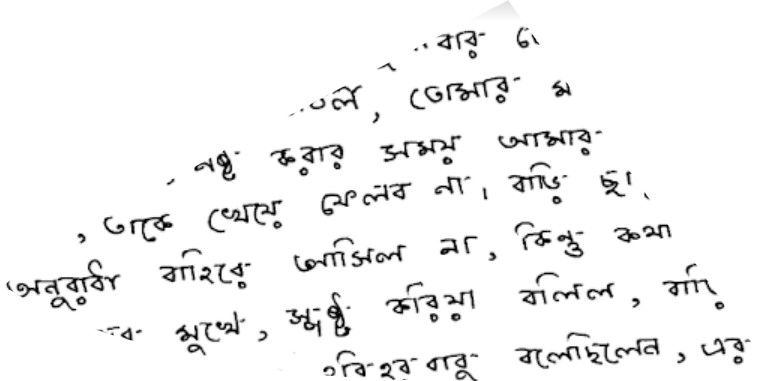 বার
তোমার
নষ্ট করার সময় আমার
, তাকে খেয়ে ফেলব না। বাড়ি
অনুরাধা বাহিরে আসিল না, কিন্তু কথা
মুখে, স্পষ্ট করিয়া বলিল,
বাবু বলেছিলেন, এর